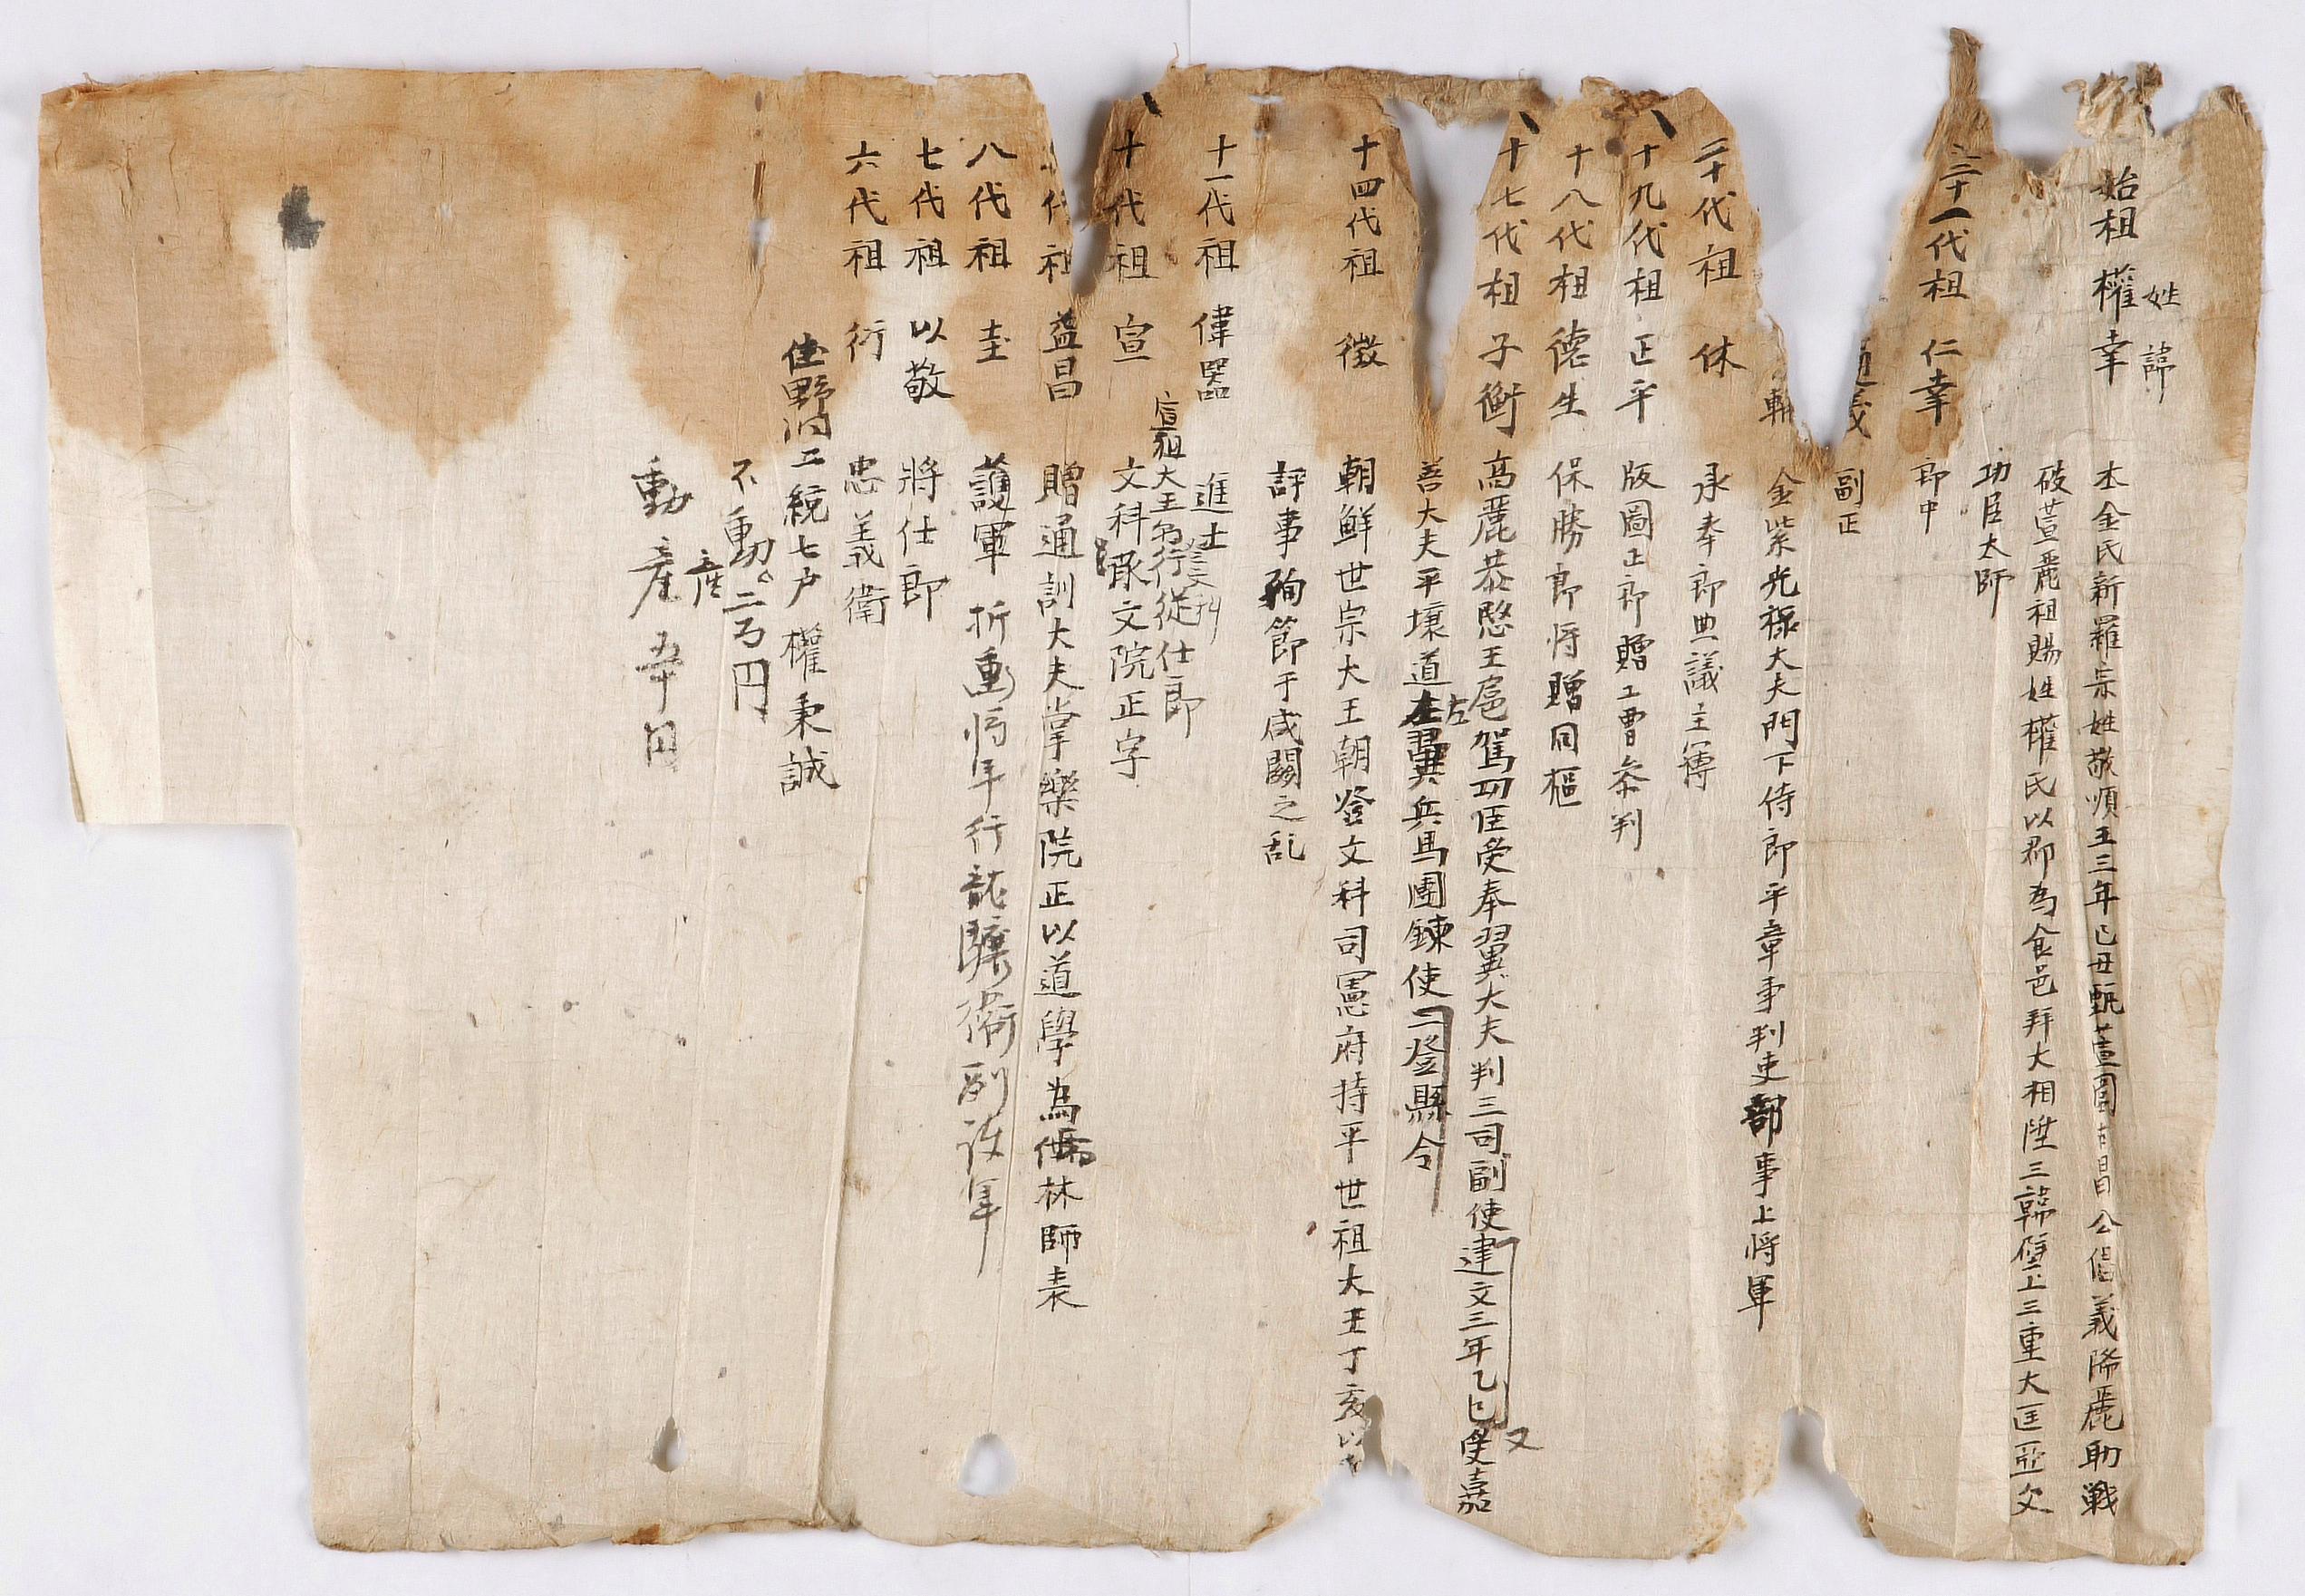 姓 諱
始祖 權幸 本金氏新羅宗姓敬順王三年己丑甄萱 昌公倡義降麗助戰
破萱麗祖賜姓權氏以郡為食邑拜大相陞三韓壁上三重大匡亞父
功臣太師
三十一代祖 仁幸 郎中
義 副正
金紫光祿大夫門下侍郎平章事判吏部事上將軍
二十代祖 休 承奉郎典議主簿
十九代祖 正平 版圖正郎贈工曹參判
十八代祖 德生 保勝郎將贈同樞
十七代祖 子衡 高麗恭愍王扈駕功臣受奉翊大夫判三司副使建文三年乙巳又受嘉
善大夫平壤道左翼兵馬團鍊使二登縣令
十四代祖 徵 朝鮮世宗大王朝登文科司憲府持平世祖大王丁亥以
評事殉節于咸關之乱
十一代祖 偉器 進士
宣祖大王 行從仕郎
十代祖 宣 文科承文院正字
代祖 益昌 贈通訓大夫掌樂院正以道學為儒林師表
八代祖 圭 護軍 折衝將軍行龍驤衛副護軍
七代祖 以敬 將仕郎
六代祖 衍 忠義衛
住野 洞二統七戶權秉誠
不動産 二万円
動産 五千円